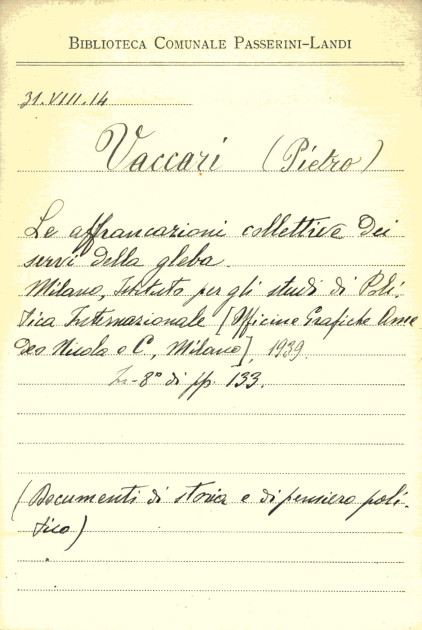 BIBLIOTECA COMUNALE PASSERINI-LANDI
31.VIII.14
Vaccari (Pietro)
Le affrancazioni collettive dei
servi della gleba.
Milano, Istituto per gli studi di Poli-
tica Internazionale [Officine Grafiche Ame
deo Nicola e C., Milano], 1939.
In-8° di pp. 133.
(Documenti di storia e di pensiero poli-
tico)